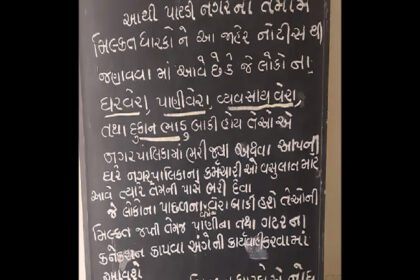 આથી પાટડી નગરના તમામ
મિલ્કત ધારકો ને આ જાહેર નોટીસ થી
જણાવવા માં આવે છે કે જે લોકો ના
ઘરવેરા, પાણીવેરા, વ્યવસાય વેરા,
તથા દુકાન ભાડુ બાકી હોય તેઓ એ
નગરપાલિકામાં ભરી જવા અથવા આપની
ઘરે નગરપાલિકાના કર્મચારી ઓ વસુલાત માટે
આવે ત્યારે તેમની પાસે ભરી દેવા
જે લોકોના પાછળના વેરા બાકી હશે તેઓની
મિલ્કત જપ્તી તેમજ પાણીના તથા ગટરના
કનેકશન કાપવા અંગેની કાર્યવાહી કરવામાં
આવશે